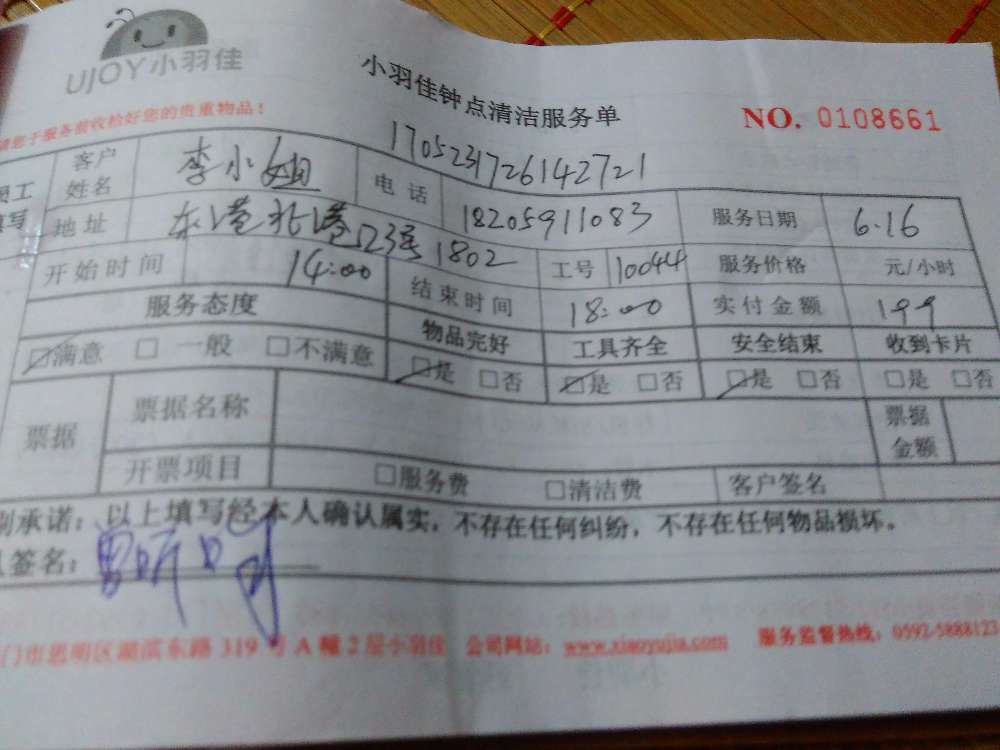 UJOY小羽佳
小羽佳钟点清洁服务单
NO. 0108661
请您于服务前收拾好您的贵重物品！
1705231726142721
员工填写
客户姓名 李小姐 电话 18205911083 服务日期 6.16
地址 东港北港口23号1802 工号 10044 服务价格 元/小时
开始时间 14:00 结束时间 18:00 实付金额 199
服务态度 物品完好 工具齐全 安全结束 收到卡片
满意 一般 不满意 是 否 是 否 是 否 是 否
票据 票据名称 票据金额
开票项目 服务费 清洁费 客户签名
别承诺：以上填写经本人确认属实，不存在任何纠纷，不存在任何物品损坏。
签名：
门市思明区湖滨东路 319 号 A 幢 2 层小羽佳 公司网站：www.xiaoyujia.com 服务监督热线：0592-5888123